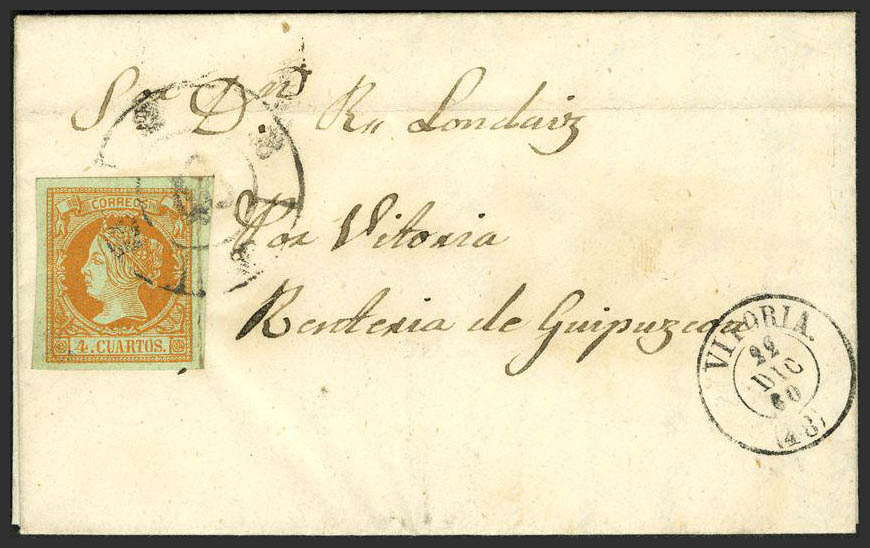 Sor Dn. Dn. Rn Londaiz
Por Vitoria
Renteria de Guipuzcoa
CORREOS
4. CUARTOS.
VITORIA.
22
DIC
60
(48)